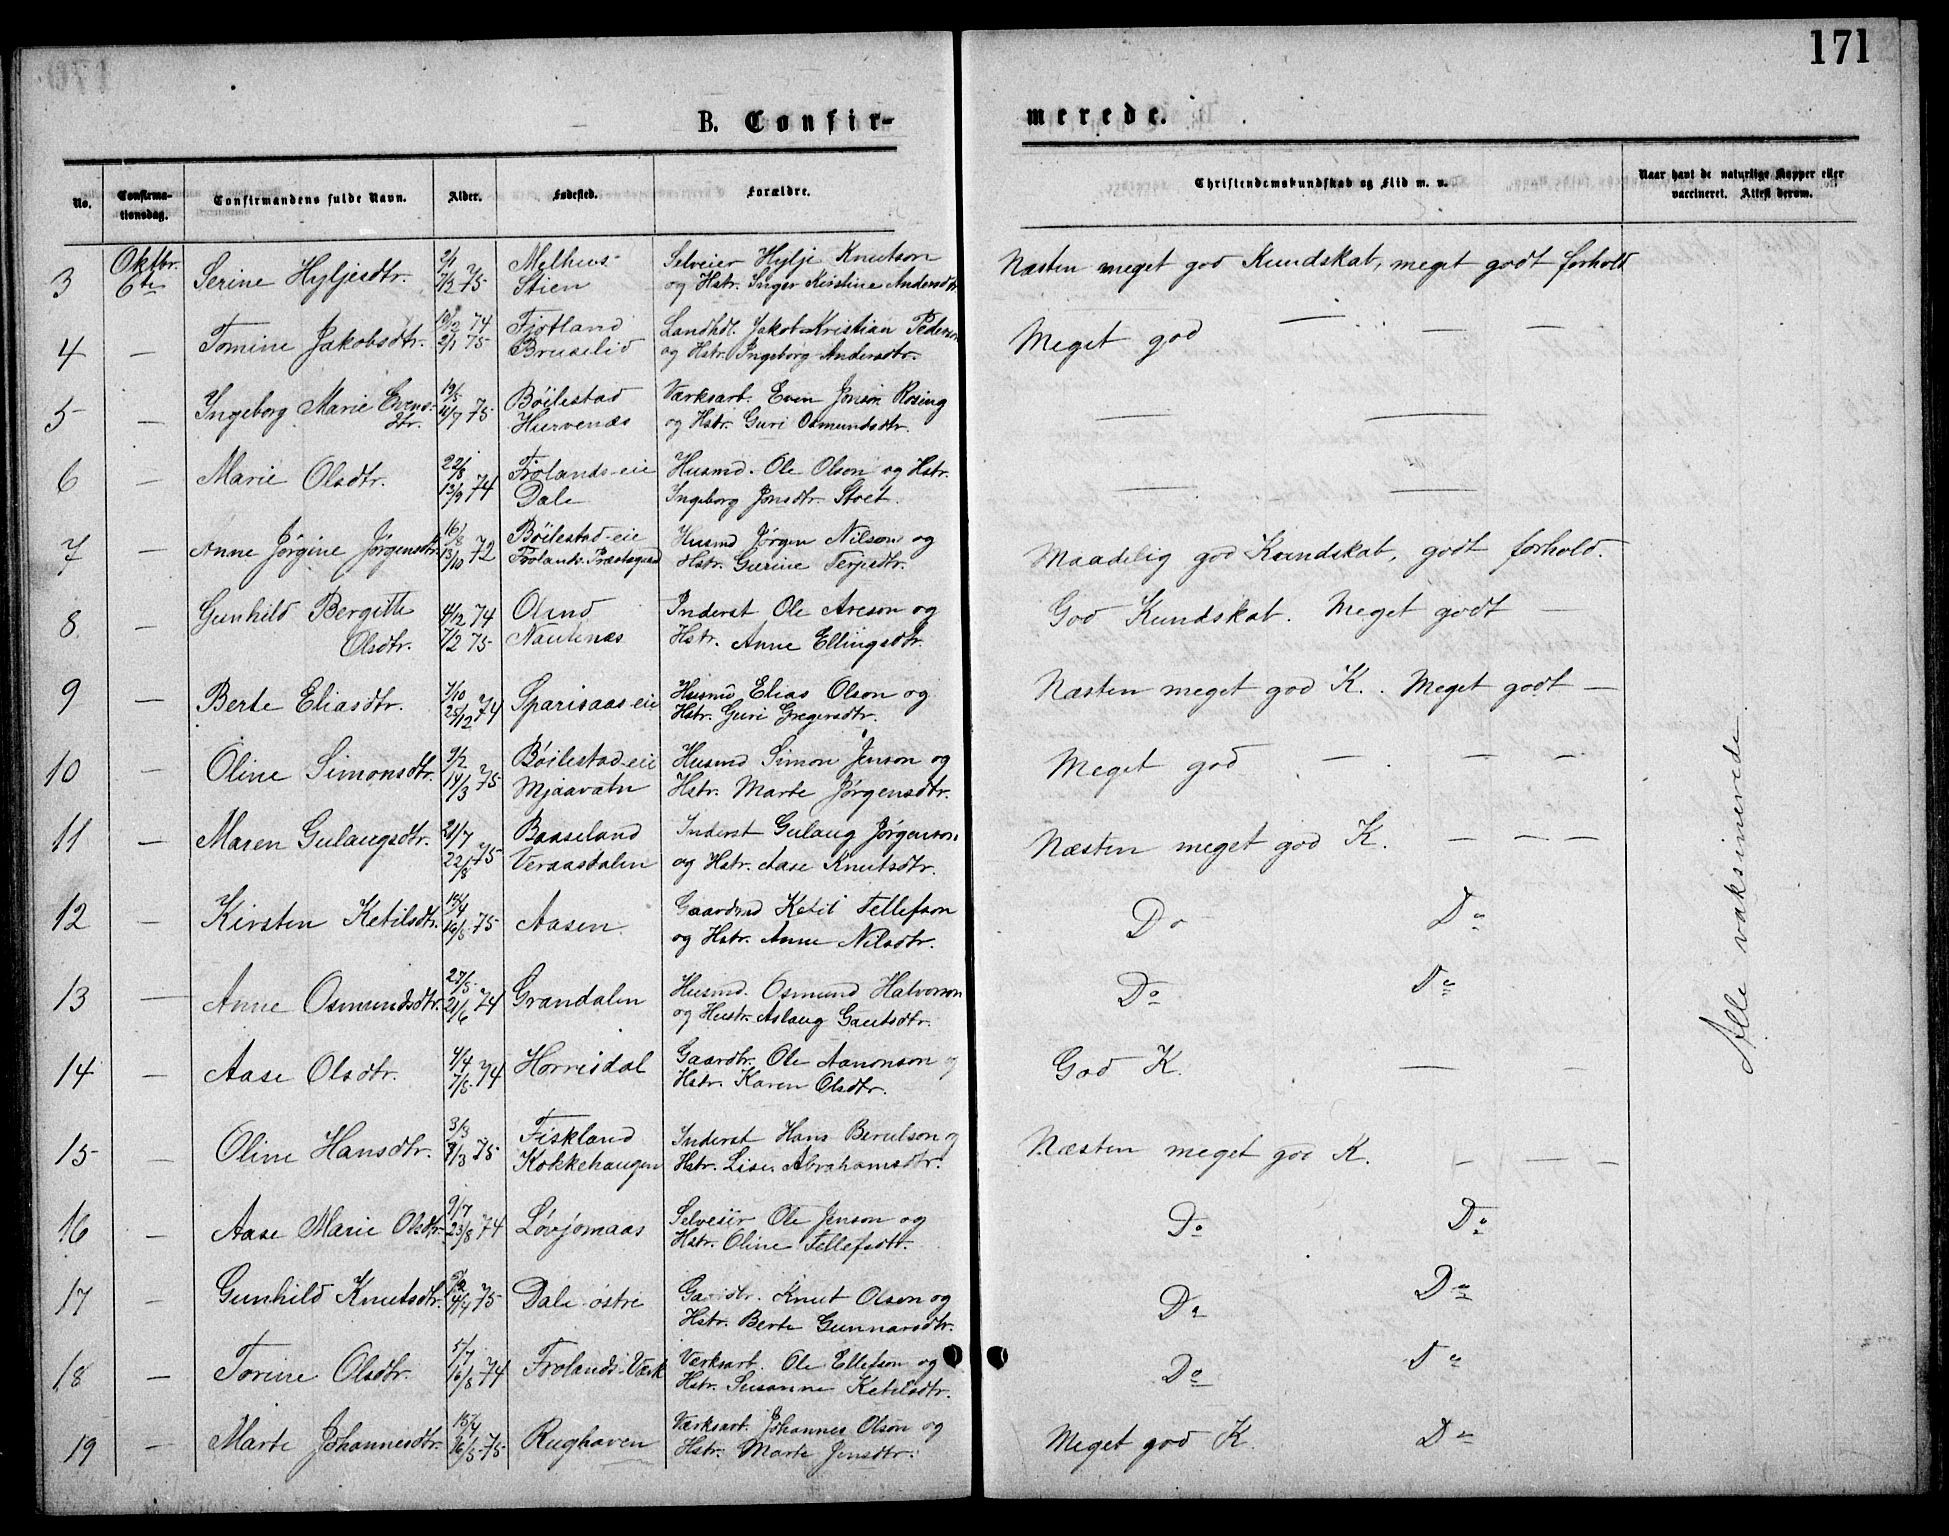 171
B. Confir-
merede.
No.
Confirma-
tionsdag.
Confirmandens fulde Navn.
Alder.
Fødested.
Forældre.
Christendomskundskab og Flid m. v.
Naar havt de naturlige Kopper eller
vaccineret. Attest derom.
3 Oktbr. 6te Serine Hyljesdtr. 2/1 7/2 75 Melhus- Stien
Selveier Hylje Knutson
og Hstr. Inger Kirstine Andersdtr.
Næsten meget god Kundskab, meget godt forhold
4 — Tomine Jakobsdtr. 74 2/1 75 Fjotland Bruselid
Landhdl. Jakob Kristian Pedersen
og Hstr. Ingeborg Andersdtr.
Meget god — — —
5 — Ingeborg Marie Evens- dtr. 19/5 11/7 75 Bøilestad Hurvenæs
Værksarb. Even Jonson Rosing
og Hstr. Guri Osmundsdtr.
— —
6 — Marie Olsdtr. 22/8 13/9 74 Frolands-eie Dale
Husmd. Ole Olson og Hstr.
Ingeborg Jonsdtr. Stoet.
— —
7 — Anne Jørgine Jørgensdtr. 16/8 13/10 72 Bøilestad-eie Frolands Præstegaard
Husmd Jørgen Nilson og
Hstr. Gurine Terjedtr.
Maadelig god Kundskab, godt forhold.
8 — Gunhild Bergitte Olsdtr. 4/12 74 7/2 75 Oland Nautenæs
Inderst Ole Areson og
Hstr. Anne Ellingsdtr.
God Kundskab. Meget godt —
9 — Berte Eliasdtr. 7/10 25/12 74 Sparisaas-eie
Husmd Elias Olson og
Hstr. Guri Gregersdtr.
Næsten meget god K. Meget godt —
10 — Oline Simonsdtr. 9/2 14/3 75 Bøilestad-eie Mjaavatn
Husmd Simon Jenson og
Hstr. Marte Jørgensdtr.
Meget god — — —
11 — Maren Gulaugsdtr. 21/7 22/8 75 Baaseland Veraasdalen
Inderst Gulaug Jørgenson
og Hstr. Aase Knutsdtr.
Næsten meget god K. — — —
12 — Kirsten Ketilsdtr. 16/5 75 Aasen
Gaardmd Ketil Tellefson
og Hstr. Anne Nilsdtr.
Do Do
13 — Anne Osmundsdtr. 27/5 21/6 74 Grandalen
Husmd. Osmund Halvorson
og Hustr. Aslaug Gautsdtr.
Do Do
14 — Aase Olsdtr. 4/4 7/5 74 Horrisdal
Gaardbr. Ole Aanonson og
Hstr. Karen Olsdtr.
God K. — —
15 — Oline Hansdtr. 3/3 75 Fiskland Kokkehaugen
Inderst Hans Berulson og
Hstr. Lise Abrahamsdtr.
Næsten meget god K. — — —
16 — Aase Marie Olsdtr. 9/7 23/8 74 Løvjomaas
Selveier Ole Jenson og
Hstr. Oline Tellefsdtr.
Do Do
17 — Gunhild Knutsdtr. 4/4 75 Dale østre
Gardbr. Knut Olsen og
Hstr. Berte Gunnarsdtr.
Do Do
18 — Torine Olsdtr. 5/7 16/8 74 Frolands-Værk
Værksarb. Ole Ellefson og
Hstr. Susanne Ketilsdtr.
Do Do
19 — Marte Johannesdtr. 18/4 16/5 75 Rughaven
Værksarb. Johannes Olson og
Hstr. Marte Jensdtr.
Meget god K. Do
Alle vaksinerede